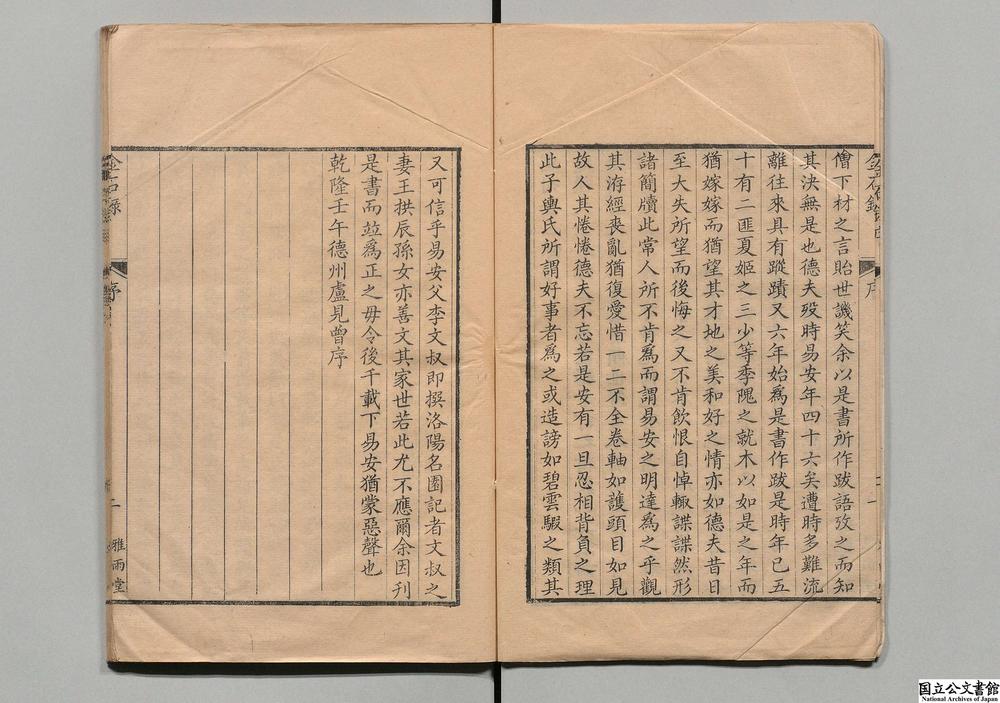 儈下材之言貽世譏笑余以是書所作跋語攷之而知
其決無是也德夫殁時易安年四十六矣遭時多難流
離往來具有蹤蹟又六年始為是書作跋是時年已五
十有二匪夏姬之三少等季隗之就木以如是之年而
猶嫁嫁而猶望其才地之美和好之情亦如德夫昔日
至大失所望而後悔之又不肯飲恨自悼輒諜諜然形
諸簡牘此常人所不肯爲而謂易安之明達爲之乎觀
其洊經喪亂猶復愛惜一二不全卷軸如護頭目如見
故人其惓惓德夫不忘若是安有一旦忍相背負之理
此子輿氏所謂好事者爲之或造謗如碧雲騢之類其
又可信乎易安父李文叔即撰洛陽名園記者文叔之
妻王拱辰孫女亦善文其家世若此尤不應爾余因刊
是書而竝爲正之毋令後千載下易安猶蒙惡聲也
乾隆壬午德州盧見曾序
金石錄
序
二
雅雨堂
国立公文書館
National Archives of Japan